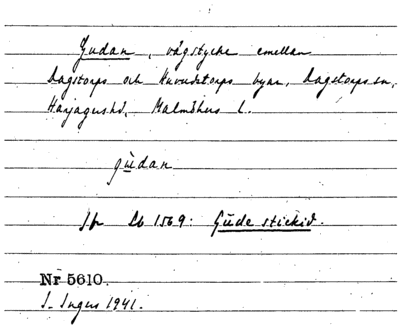 Gudan, vägstycke emellan
Dagstorps och Huvudstorps byar, Dagstorps sn,
Harjagers hd, Malmöhus l.
gudan
Jfr Lb 1569: Gude stickid.
Nr 5610.
S. Ingers 1941.